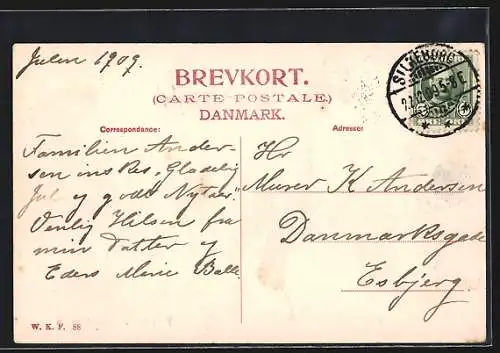 Julen 1909.
BREVKORT.
(CARTE POSTALE.)
DANMARK.
Correspondance:
Adresse:
Familien Ander-
sen ins Res, Glædelig
Jul og godt Nytaar.
Venlig Hilsen fra
min Datter og
Eders Marie Balle
Hr
Murer K Andersen
Danmarksgade
Esbjerg.
SILKEBORG
W. K. F. 88